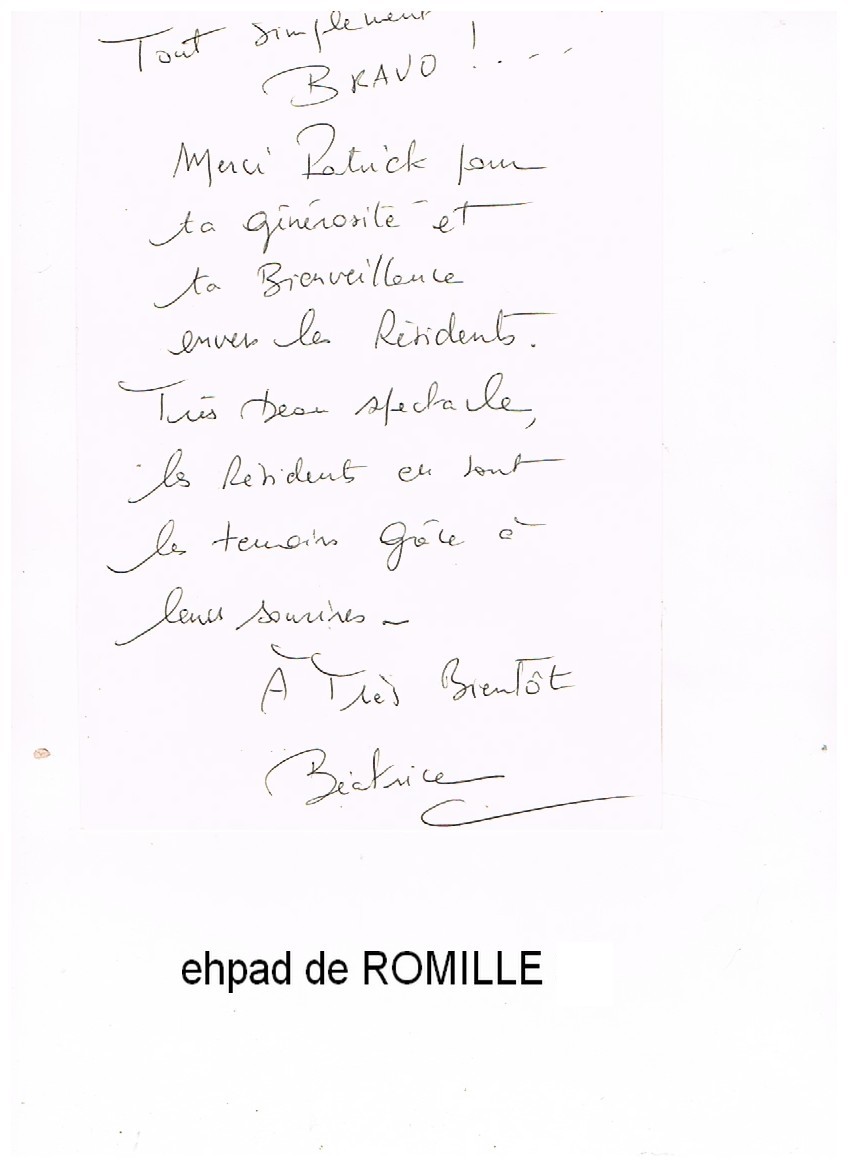 Tout simplement
BRAVO !....
Merci Patrick pour
ta générosité et
ta Bienveillance
envers les Résidents.
Très beau spectacle,
les Résidents en sont
les temoins grâce à
leurs sourires -
À Très Bientôt
Béatrice
ehpad de ROMILLE